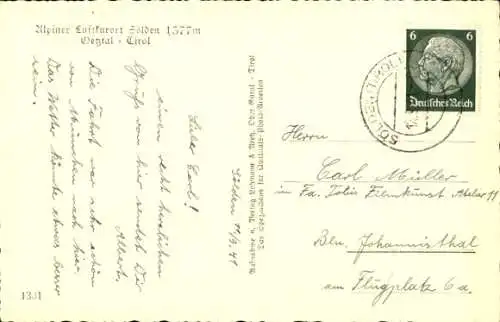 Alpiner Luftkurort Sölden 1377m
Oetztal - Tirol
Sölden 11/9. 41
Lieber Carl!
einen recht herzlichen
Gruß von hier sendet Dir
Albert.
Die Fahrt war sehr schön
von München nach hier.
Das Wetter könnte etwas besser
sein.
1331
Aufnahme u. Verlag Lohmann &
Ober Gurgl - Tirol
6 6
Deutsches Reich
SÖLDEN (TIROL)
Herrn
Carl Müller
im Fa. Tobis Filmkunst Atelier 11
Bln. Johannisthal
am Flugplatz 6a.